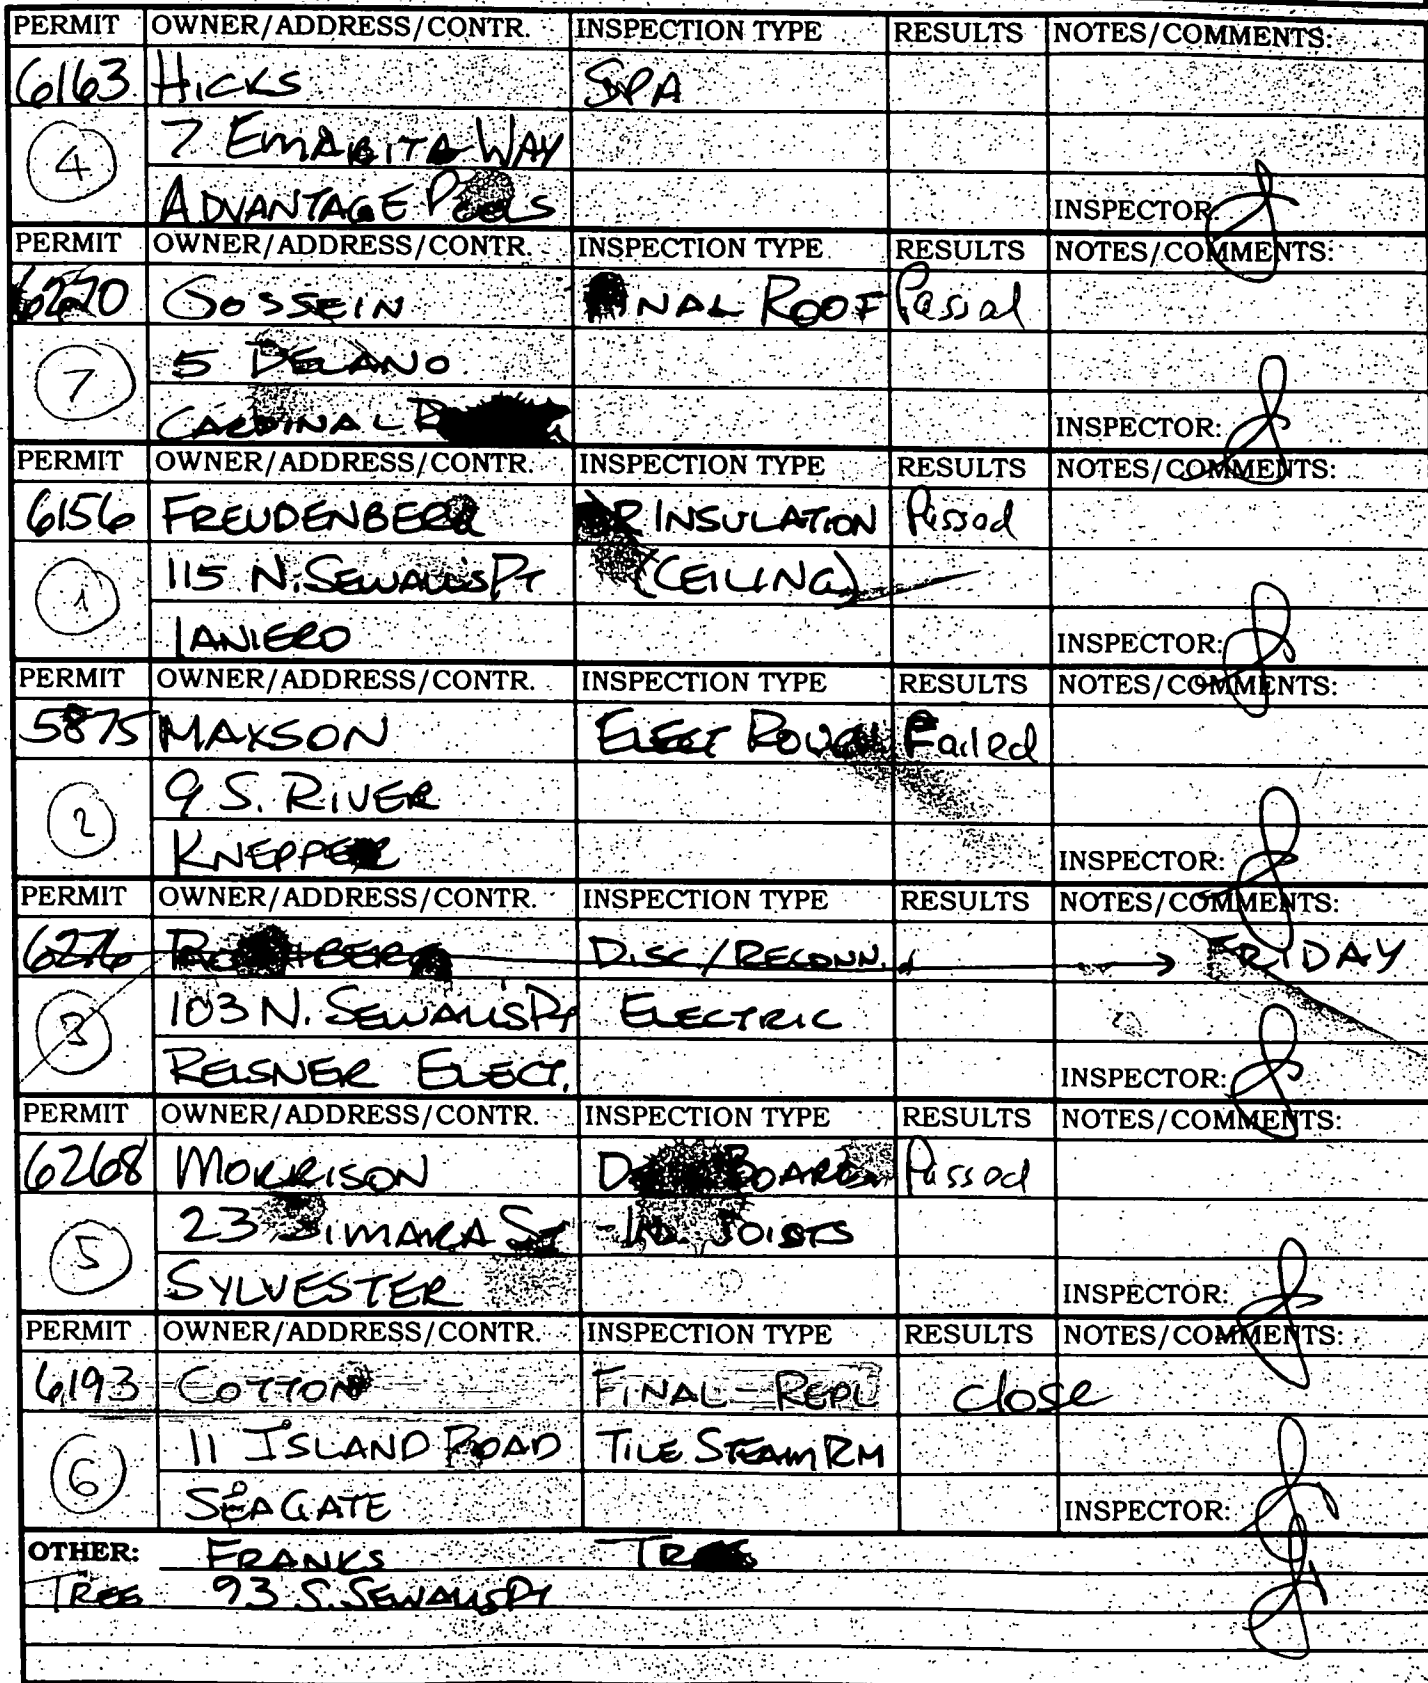 PERMIT OWNER/ADDRESS/CONTR. INSPECTION TYPE RESULTS NOTES/COMMENTS:
6163 HICKS SPA
4 7 EMARITA WAY
ADVANTAGE POOLS INSPECTOR:
PERMIT OWNER/ADDRESS/CONTR. INSPECTION TYPE RESULTS NOTES/COMMENTS:
6270 GOSSEIN FINAL ROOF Passed
7 5 DELANO
CARDINAL INSPECTOR:
PERMIT OWNER/ADDRESS/CONTR. INSPECTION TYPE RESULTS NOTES/COMMENTS:
6156 FREUDENBERG INSULATION Passed
1 115 N. SEWALL'S PT (CEILING)
LANIERO INSPECTOR:
PERMIT OWNER/ADDRESS/CONTR. INSPECTION TYPE RESULTS NOTES/COMMENTS:
5875 MAXSON ELECT ROUGH Failed
2 9 S. RIVER
KNEPPER INSPECTOR:
PERMIT OWNER/ADDRESS/CONTR. INSPECTION TYPE RESULTS NOTES/COMMENTS:
6276 DISC/RECONN. → FRIDAY
3 103 N. SEWALL'S PT ELECTRIC
REISNER ELECT. INSPECTOR:
PERMIT OWNER/ADDRESS/CONTR. INSPECTION TYPE RESULTS NOTES/COMMENTS:
6268 MORRISON Passed
5 23 SIMARA ST JOISTS
SYLVESTER INSPECTOR:
PERMIT OWNER/ADDRESS/CONTR. INSPECTION TYPE RESULTS NOTES/COMMENTS:
6193 COTTON FINAL - REPL close
6 11 ISLAND ROAD TILE STEAM RM
SEAGATE INSPECTOR:
OTHER: FRANKS TREE
TREE 93 S. SEWALLS PT